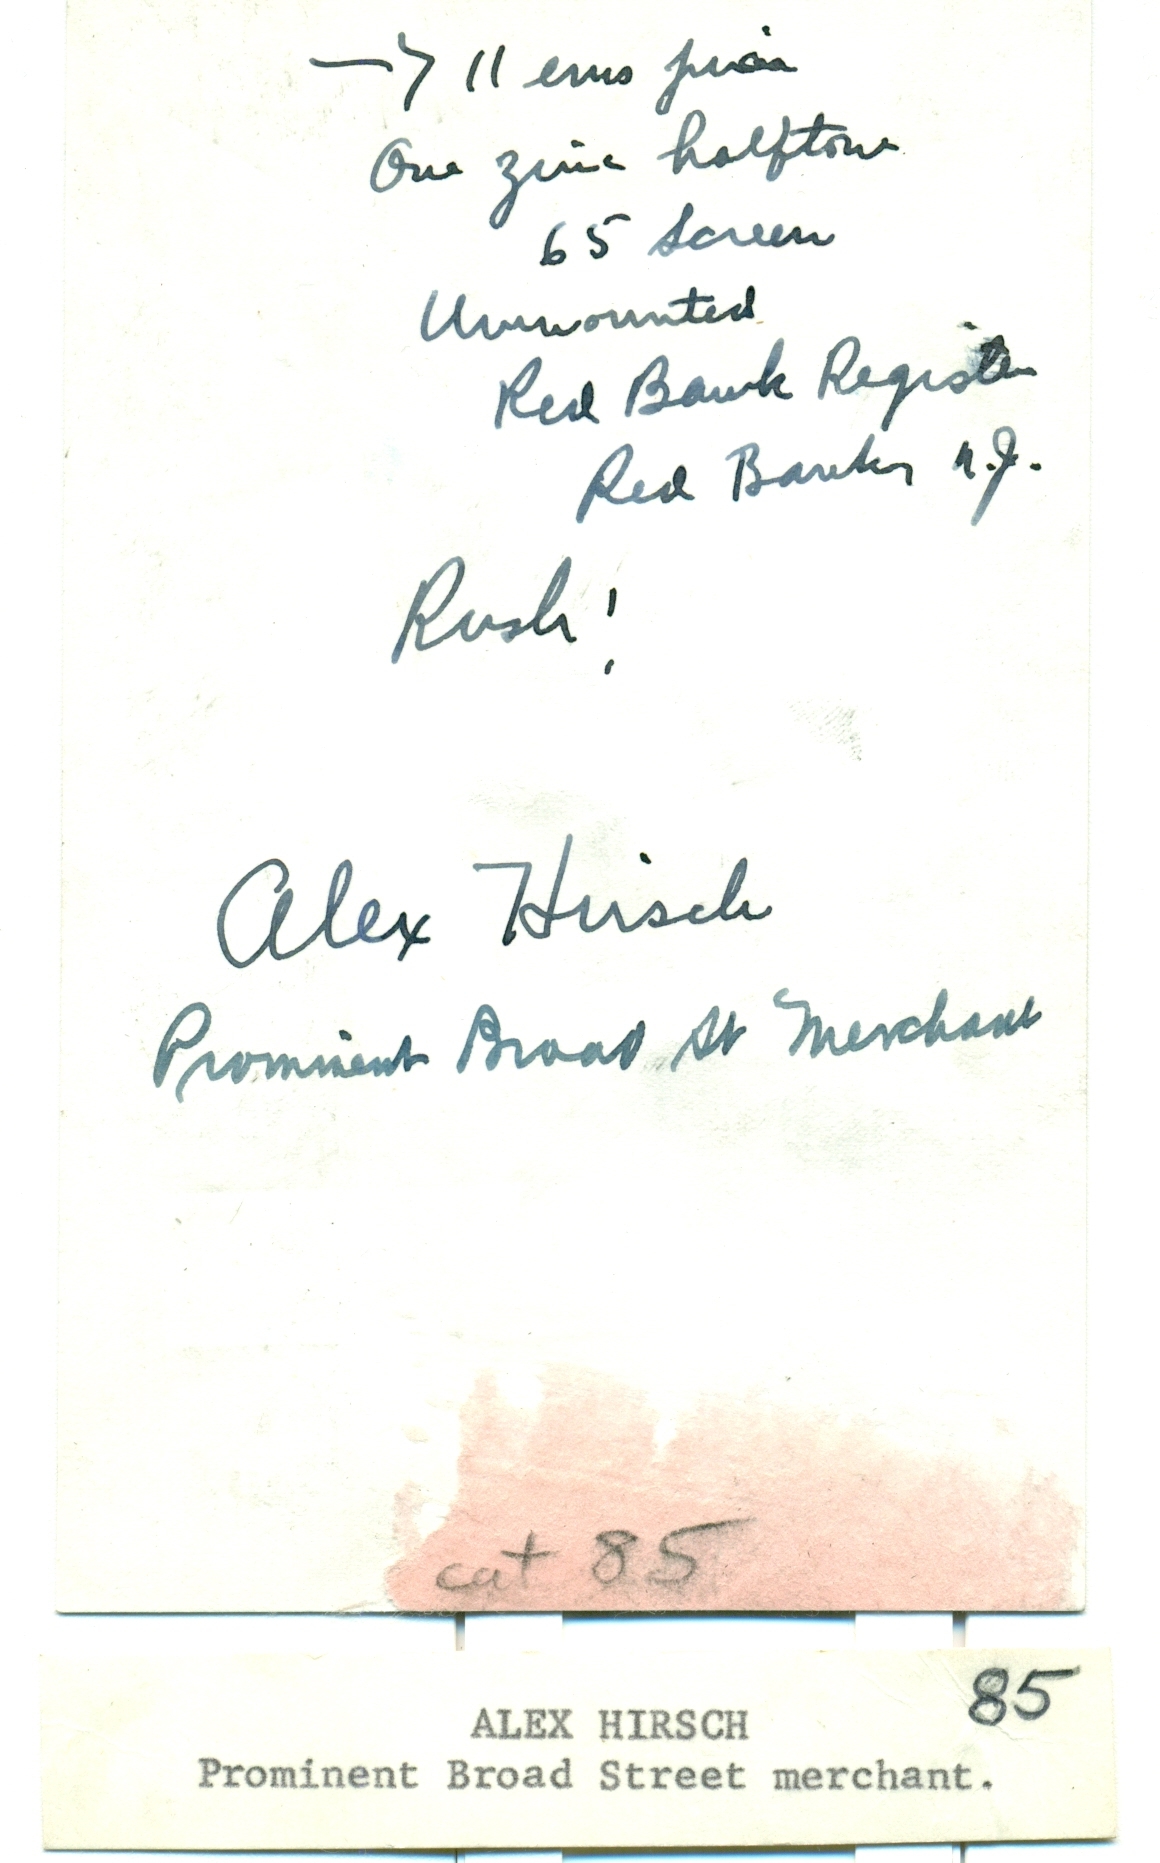 → 11 ems pica
One zinc halftone
65 Screen
Unmounted
Red Bank Register
Red Bank, N.J.
Rush!
Alex Hirsch
Prominent Broad St Merchant
cat 85
85
ALEX HIRSCH
Prominent Broad Street merchant.